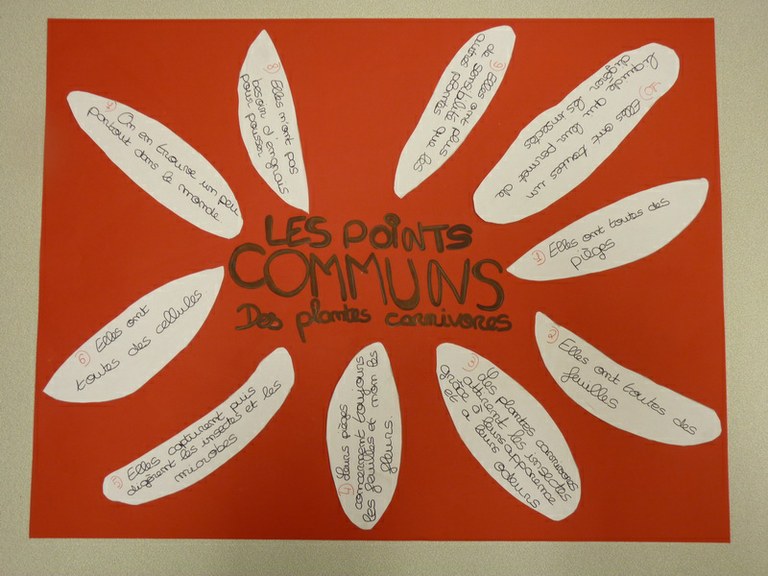 LES POINTS
COMMUNS
Des plantes carnivores
① Elles ont toutes des
pièges
② Elles ont toutes des
feuilles
③ Les plantes carnivores
attirent les insectes
grâce à leurs apparence
et a leurs odeurs
④ Leurs pièges
concernent toujours
les feuilles et non les
fleurs.
⑤ Elles capturent puis
digèrent les insectes et les
microbes
⑥ Elles ont
toutes des cellules
⑦ On en trouve un peu
partout dans le monde
⑧ Elles n'ont pas
besoin d'engrais
pour pousser
⑨ Elles ont plus
de sensibilité que les
autres plantes
⑩ Elles ont toutes un
liquide qui leur permet de
digérer les insectes